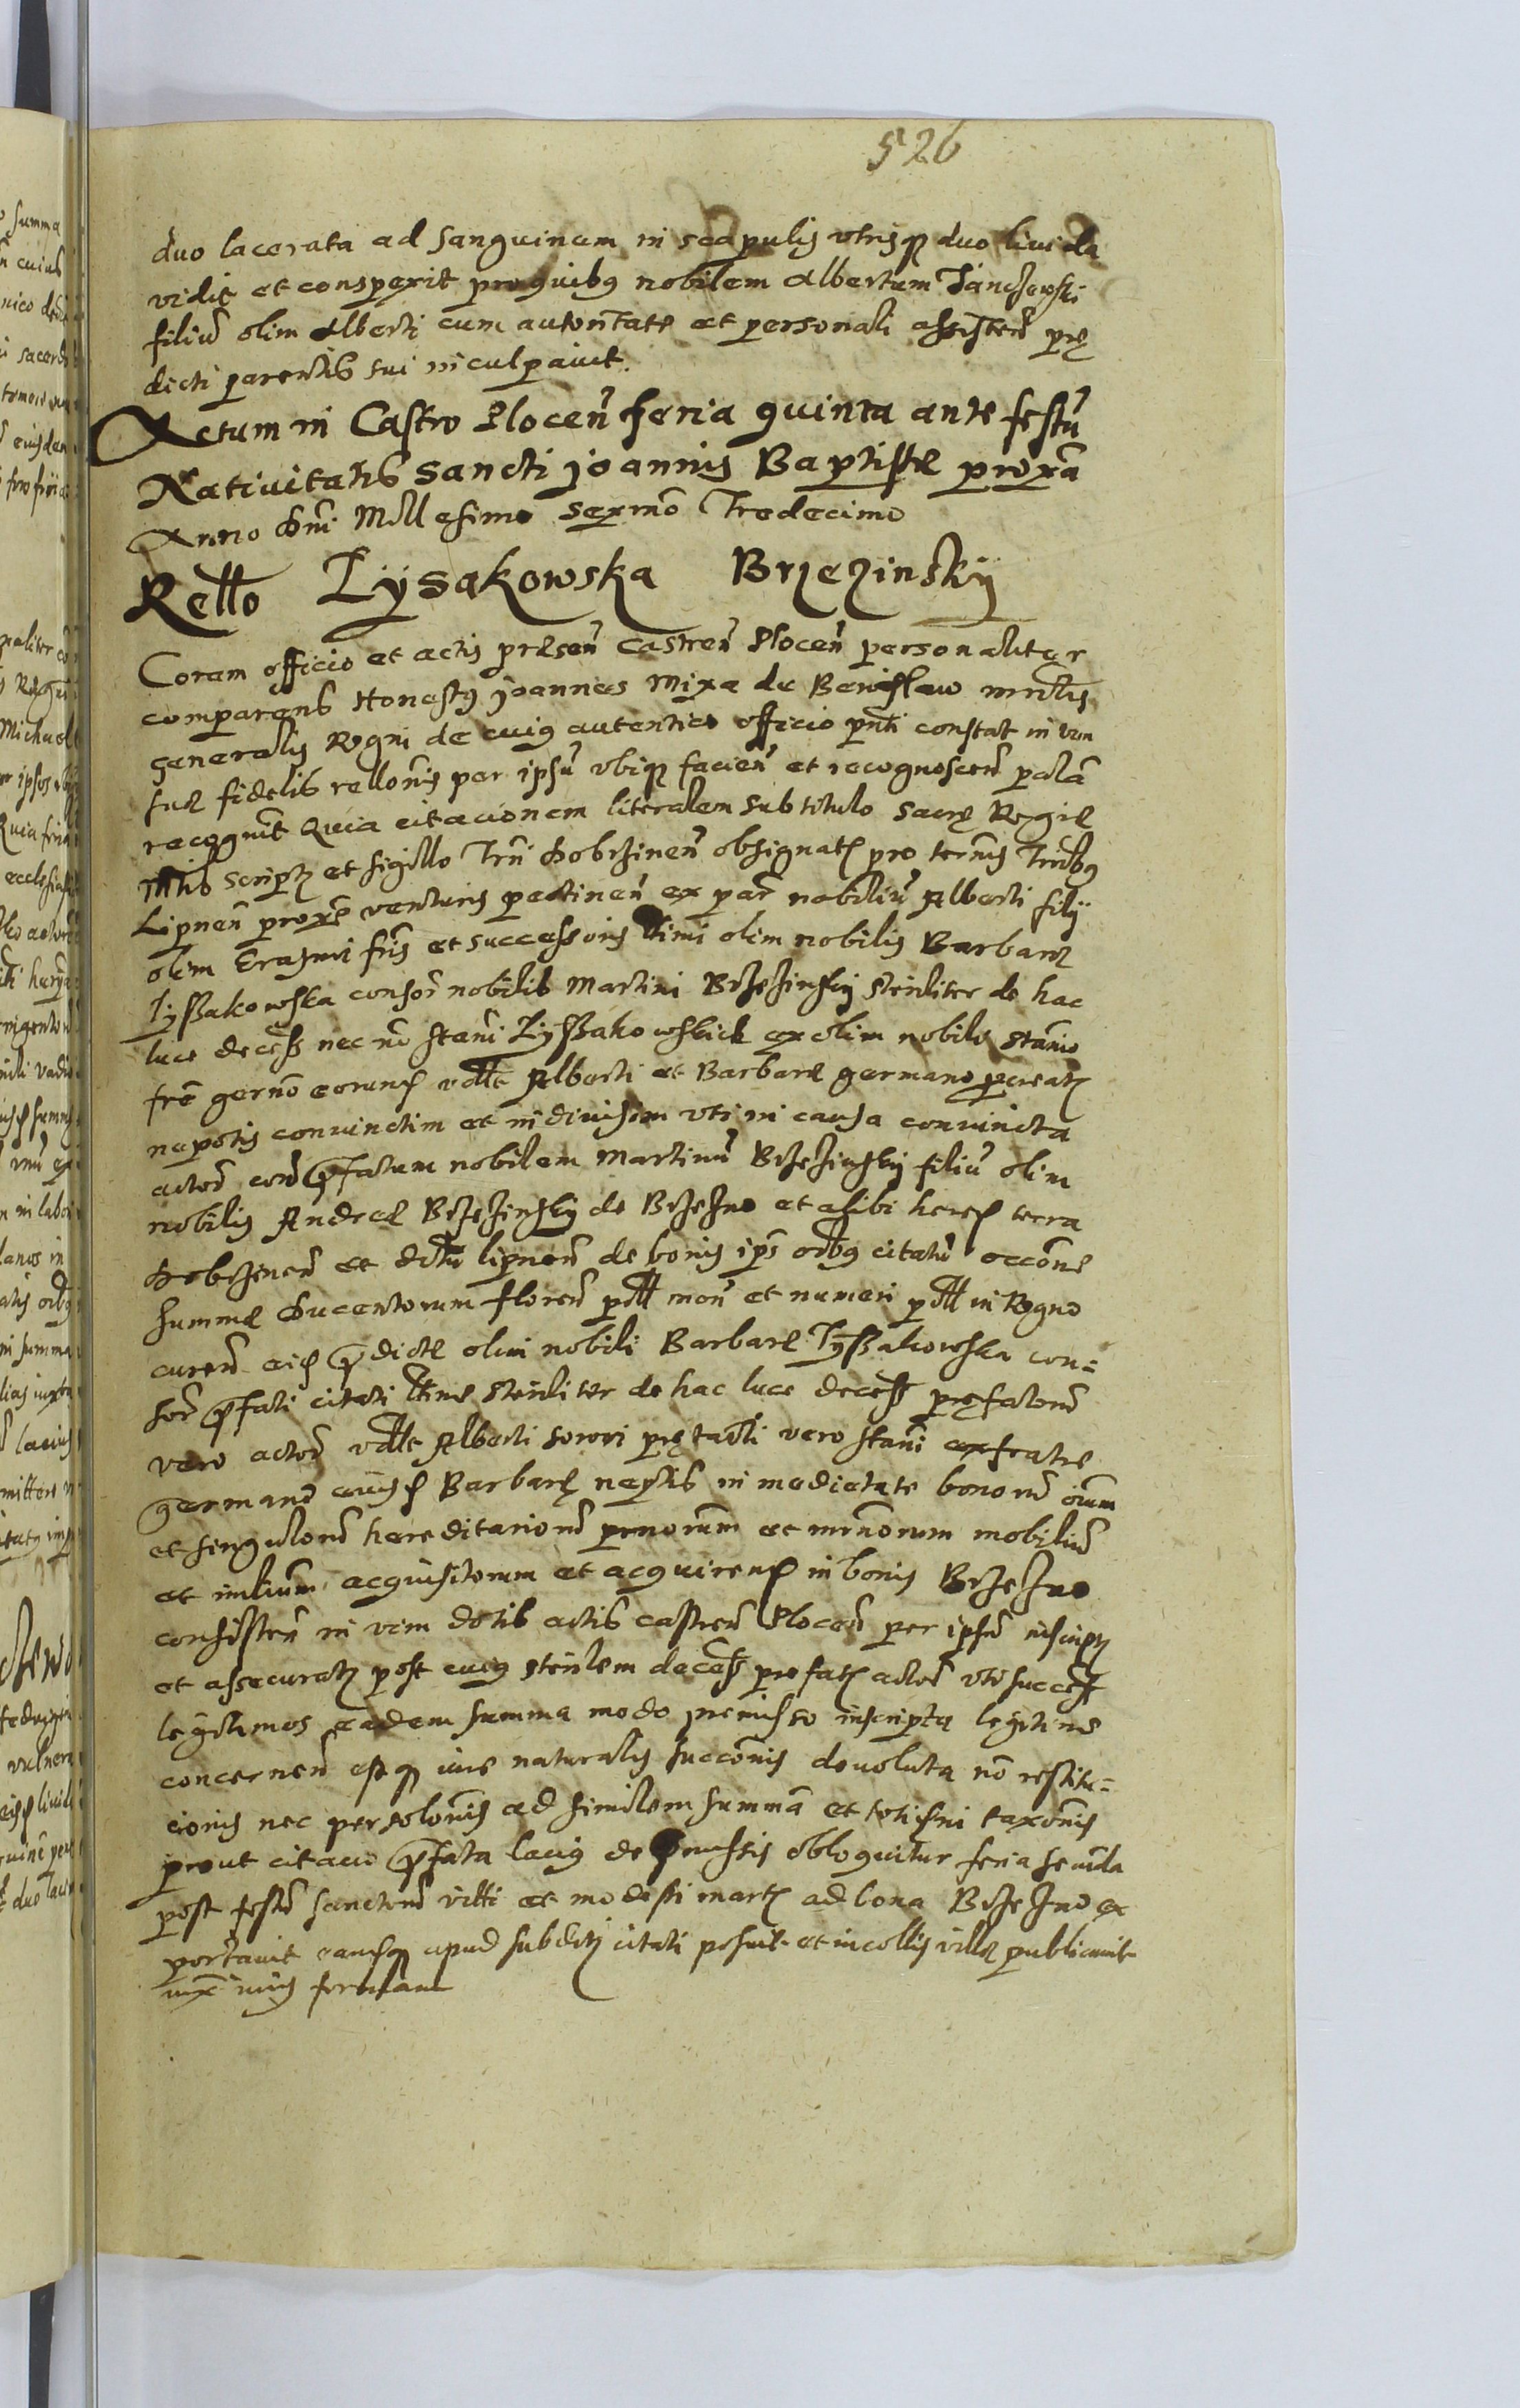 526
duo lacerata ad sanguinem in scapulis utrisq duo livida
vidit et conspexit pro quibus nobilem Albertum
filiu olim Alberti cum autoritate et personali assisten prę
dicti parentis sui inculpavit.
Actum in Castro Plocen feria quinta ante festu
Nativitatis Sancti Joannis Baptistæ proxa
Anno Dni Millesimo Sexmo Tredecimo
Rello Lysakowska Brzezinsky
Coram officio et actis præsen Castren Plocen personaliter
comparens Honestus Joannes Mixa de mrlis
generalis Regni de cuius autentico officio pnti constat in vim
suæ fidelis rellonis per ipsu ubiq facien et recognoscen palā
recognit Quia citacionem literalem sub titulo Sacrę Regiæ
Mtis script et sigillo Trri Dobrzinen obsignat pro ternis Trribus
Lipnen proxe venturis pertinen ex par nobiliu Alberti filij
olim Erasmi fris et successoris olim nobilis Barbaræ
Lyssakowska consor nobilis Martini Brzezinsky steriliter de hac
luce decess nec no Stani Lyssakowskich ex olim nobili Stanio
fre germo eorund Alberti et Barbaræ germano pcreat
nepotis convinctim et indivisim uti in causa convincta
actor con pfatum nobilem Martinu Brzezinsky filiu olim
nobilis Andreæ Brzezinsky de Brzezno et alibi hered terra
Dobrzinen et dictu lipnen de bonis ips oibus citatu occone
summæ Ducentorum floren pol mon et numeri pol in Regno
curen eid pdictæ olim nobili Barbaræ Lyssakowska con=
sor pfati citati steriliter de hac luce decess pręfator
vero actor Alberti sorori pręfati vero Stani ex fratre
germano eiusd Barbarę neptis in medietate bonoru oium
et singuloru hereditarioru pnorum et mrnorum mobiliu
et imlium acquisitorum et acquirend in bonis Brzezno
consisten in vim dotis actis castren Plocen per ipsu inscript
et assecurat post cuius sterilem decess prefat actor uti success
legitimos eadem summa modo præmisso inscripta legitime
concernen estq iure naturalis succonis devoluta no restitu=
cionis nec persolonis ad similem summā et totisni taxonis
prout citacio pfata lacius de pmissis obloquitur feria secunda
post festu sanctoru Viti et Modesti mart ad bona Brzezno ex
portavit eamq apud subdit citati posuit et incolis villę publicavit
iux iuris formam